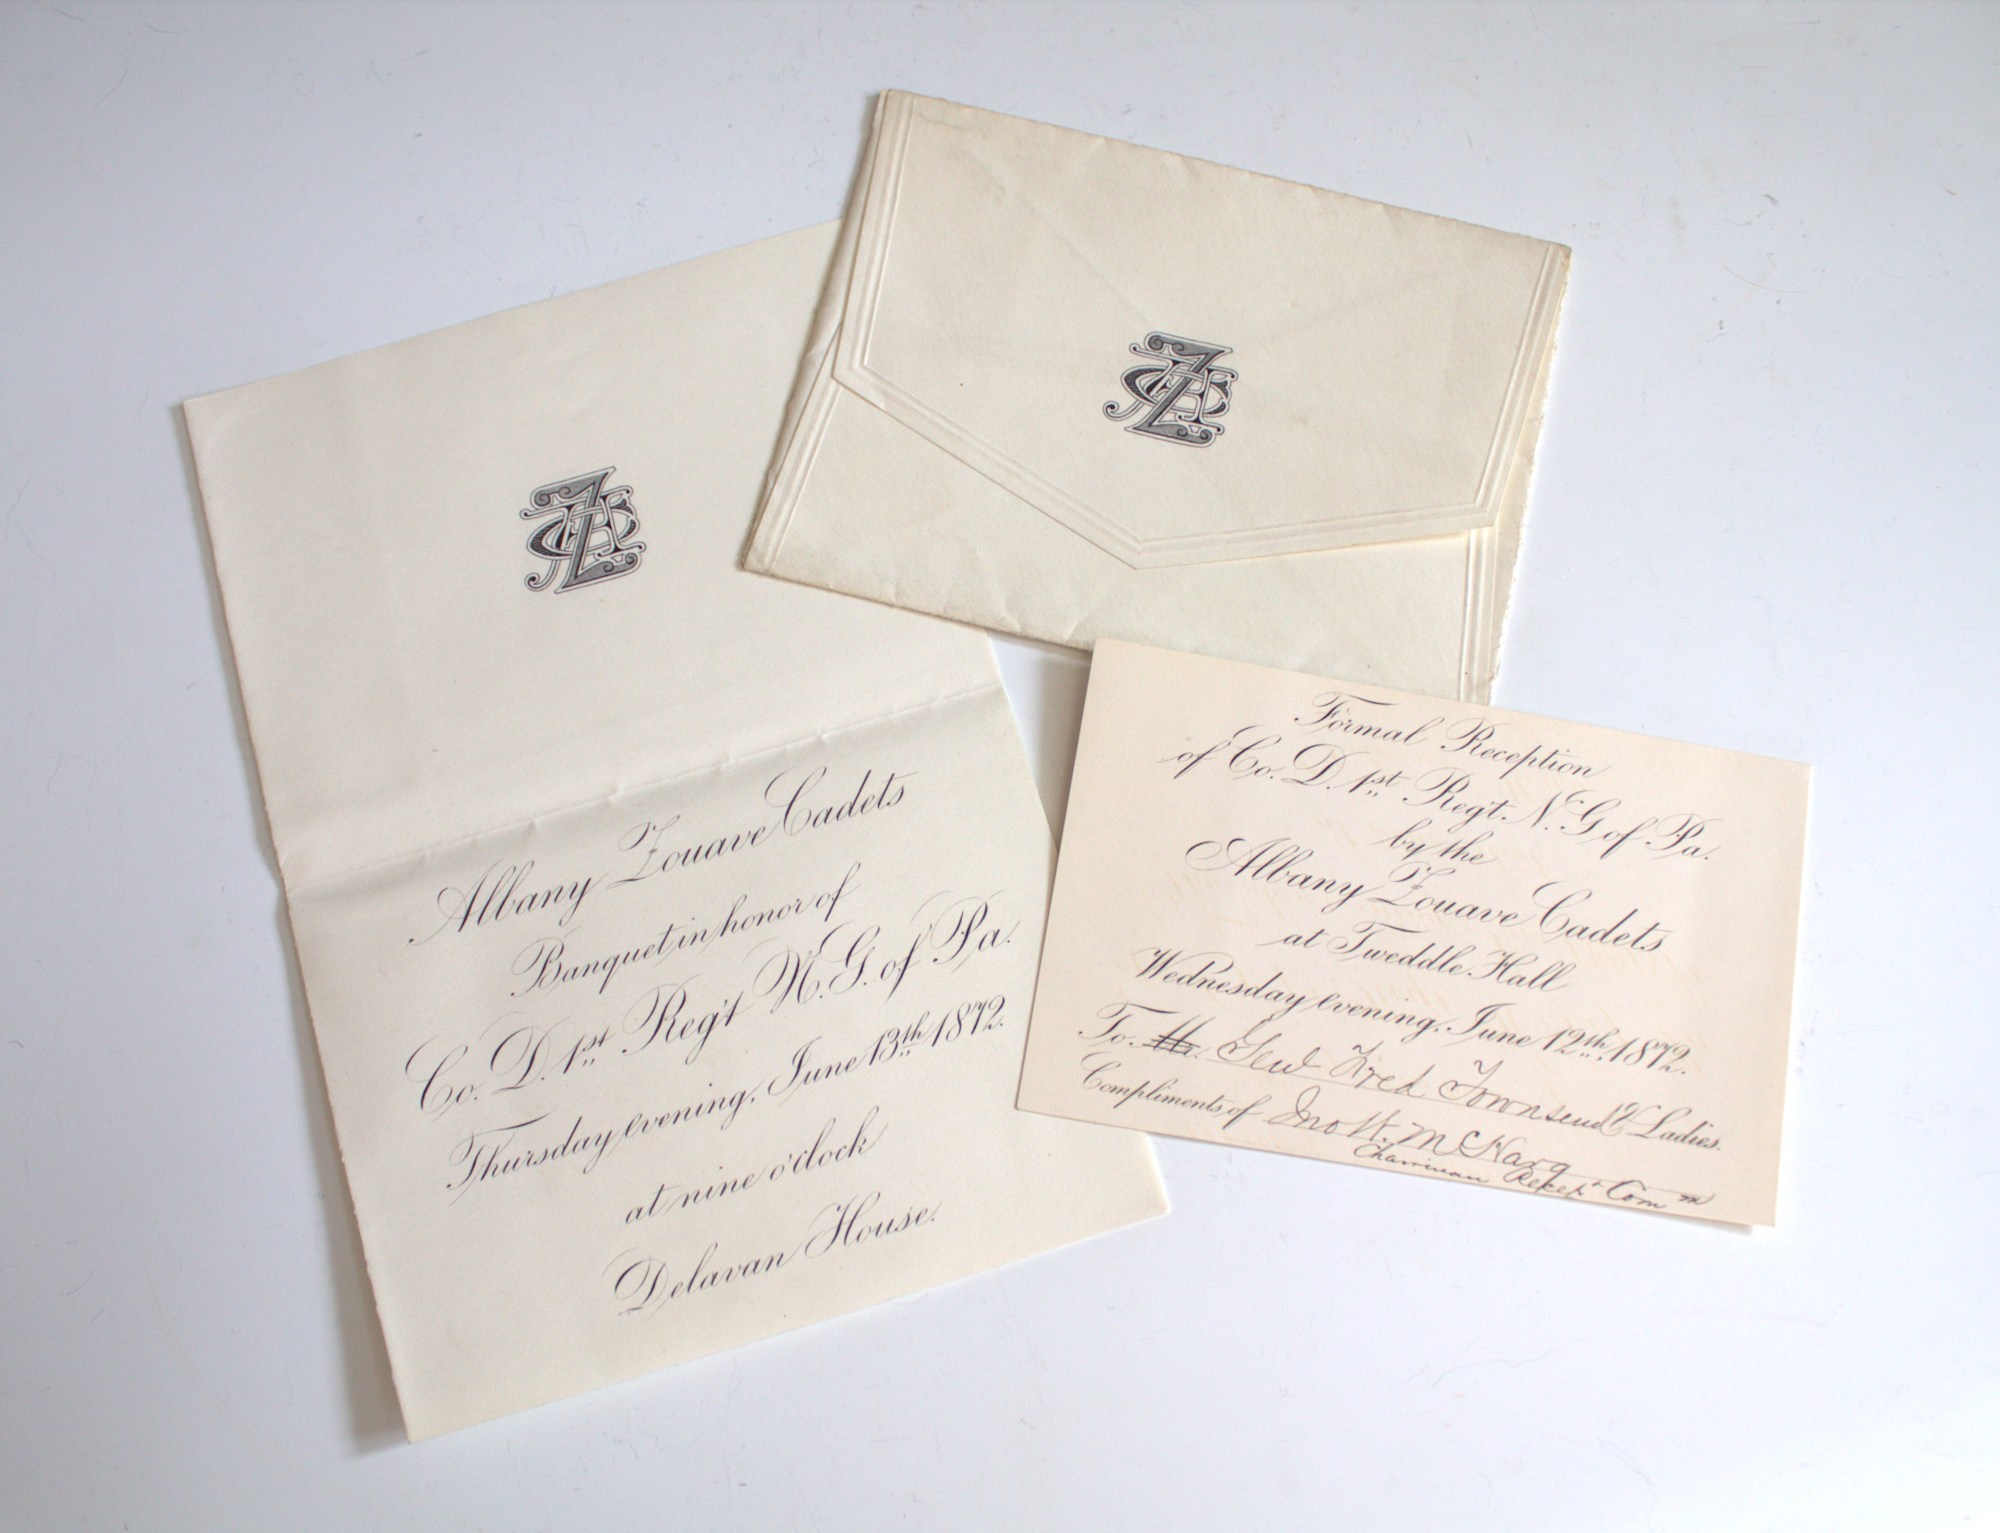 AZC
Albany Zouave Cadets
Banquet in honor of
Co. D. 1st Reg't N.G. of Pa.
Thursday evening, June 13th 1872.
at nine o'clock
Delavan House.
AZC
Formal Reception
of Co. D. 1st Reg't. N.G of Pa.
by the
Albany Zouave Cadets
at Tweddle Hall
Wednesday evening, June 12th, 1872.
To Mr. Genl Fred Townsend & Ladies.
Compliments of Jno H. McHarg
Chairman Recept Com